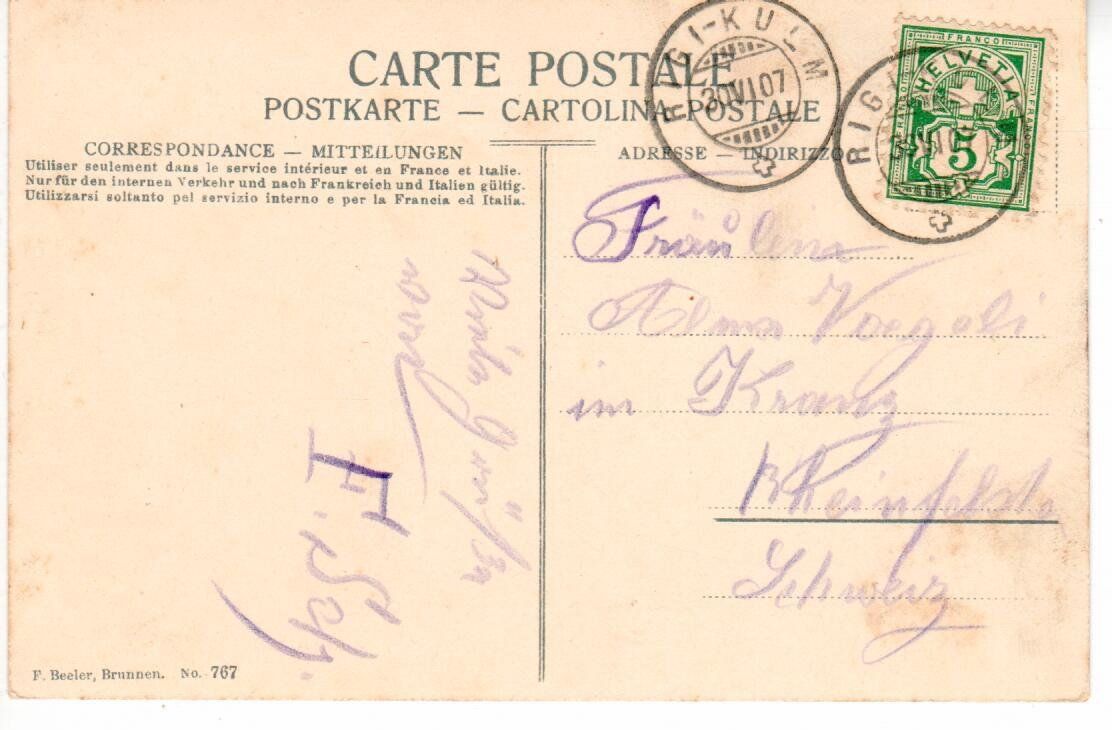 CARTE POSTALE
POSTKARTE — CARTOLINA POSTALE
CORRESPONDANCE — MITTEILUNGEN
Utiliser seulement dans le service intérieur et en France et Italie.
Nur für den internen Verkehr und nach Frankreich und Italien gültig.
Utilizzarsi soltanto pel servizio interno e per la Francia ed Italia.
ADRESSE — INDIRIZZO
RIGI-KULM
30 VI 07
RIGI
FRANCO
HELVETIA
5
Fräulein
Alma Voegeli
im Kranz
Rheinfelden
Schweiz
Grüße
F. Sch.
F. Beeler, Brunnen. No. 767